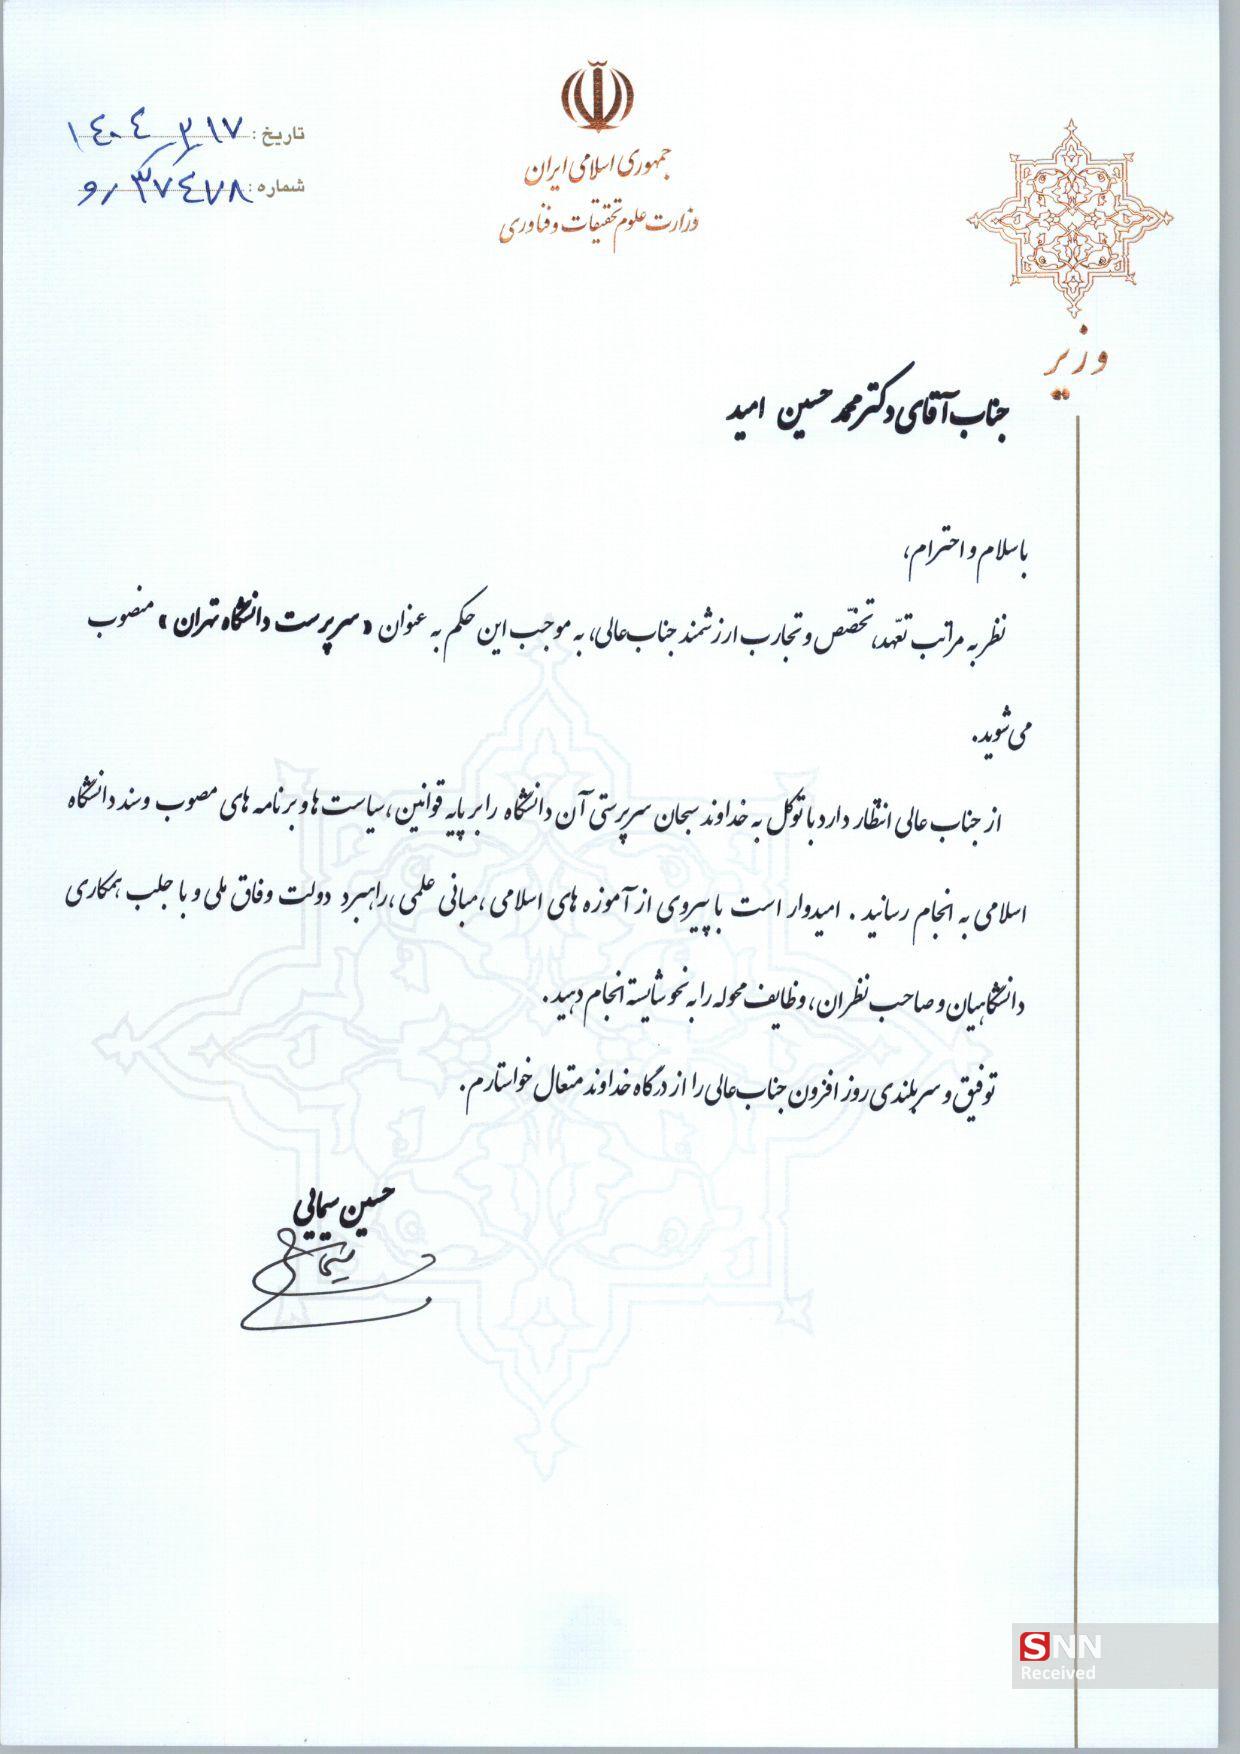 جمهوری اسلامی ایران
وزارت علوم تحقیقات و فناوری
تاریخ : ۱۴۰۴/۳/۱۷
شماره : ۳۷۴۷۸/و
وزیر
جناب آقای دکتر محمد حسین امید
با سلام و احترام،
نظر به مراتب تعهّد، تخصّص و تجارب ارزشمند جناب‌عالی، به موجب این حکم به عنوان «سرپرست دانشگاه تهران» منصوب
می‌شوید.
از جناب عالی انتظار دارد با توکل به خداوند سبحان سرپرستی آن دانشگاه را بر پایه قوانین، سیاست ها و برنامه های مصوب و سند دانشگاه
اسلامی به انجام رسانید. امیدوار است با پیروی از آموزه های اسلامی، مبانی علمی، راهبرد دولت وفاق ملی و با جلب همکاری
دانشگاهیان و صاحب نظران، وظایف محوله را به نحو شایسته انجام دهید.
توفیق و سربلندی روز افزون جناب‌عالی را از درگاه خداوند متعال خواستارم.
حسین سیمایی
SNN
Received